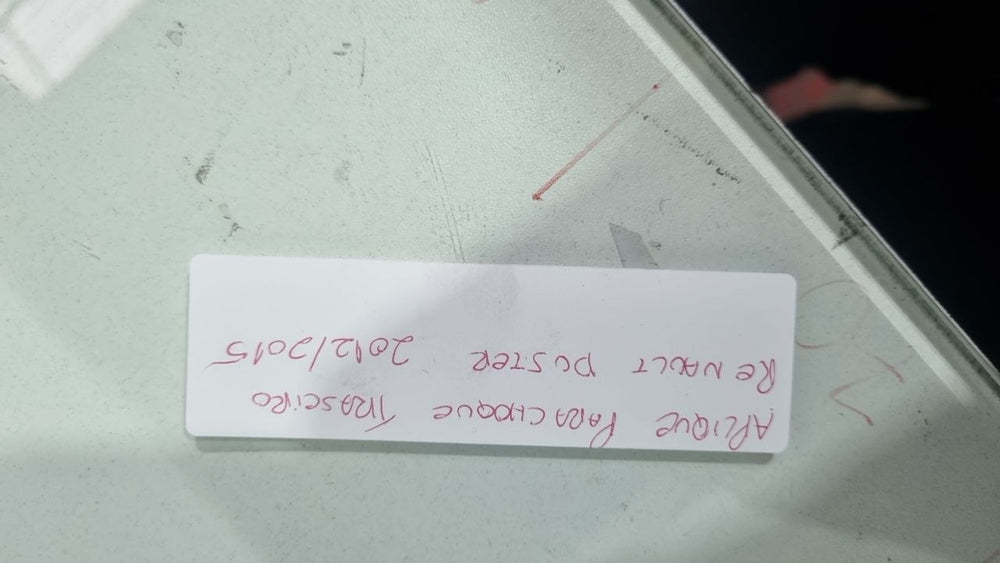 APLIQUE PARACHOQUE TRASEIRO
RENAULT DUSTER 2012/2015